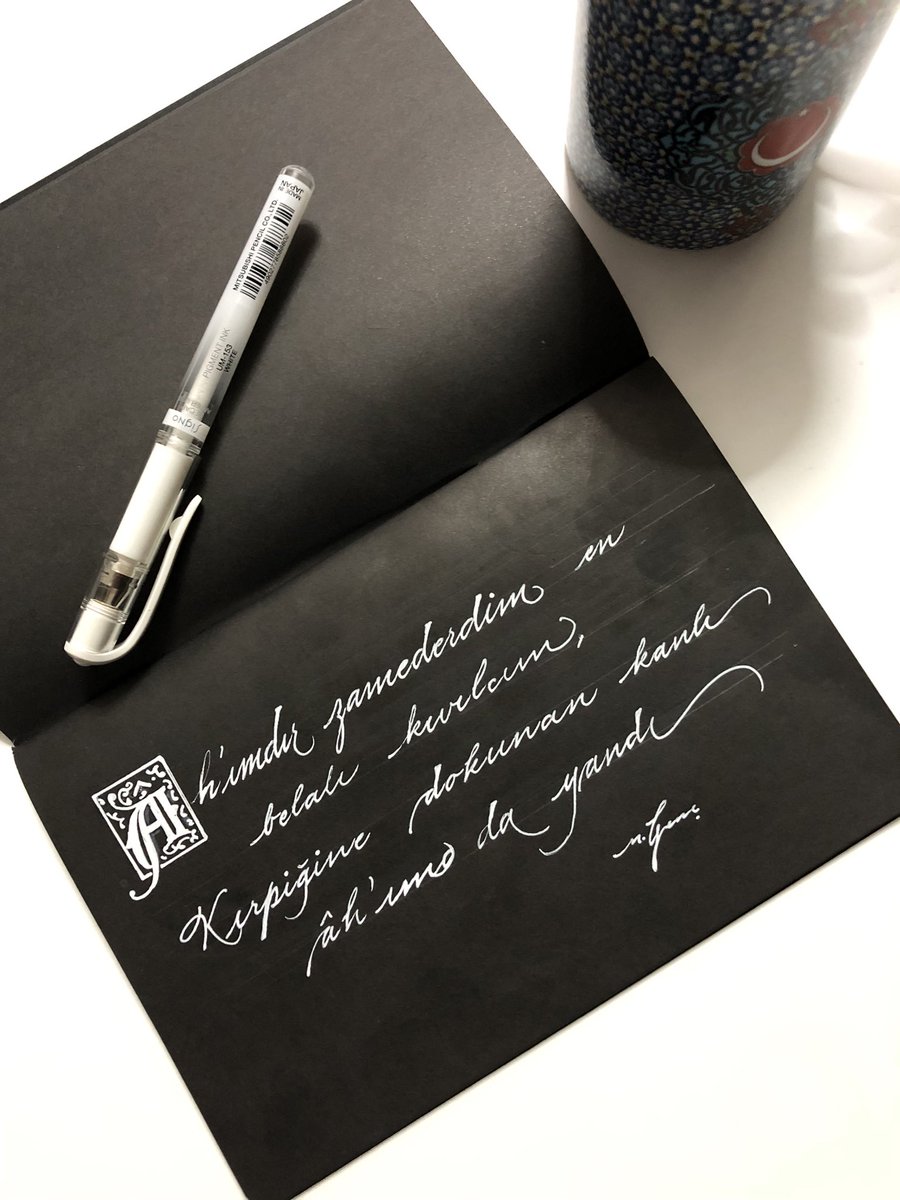 MADE IN
JAPAN
MITSUBISHI PENCIL CO.,LTD.
PIGMENT INK
UM-153
WHITE
signo
Âh'ımdır zannederdim en
belalı kıvılcım,
Kirpiğine dokunan kanlı
âh'ım o da yandı